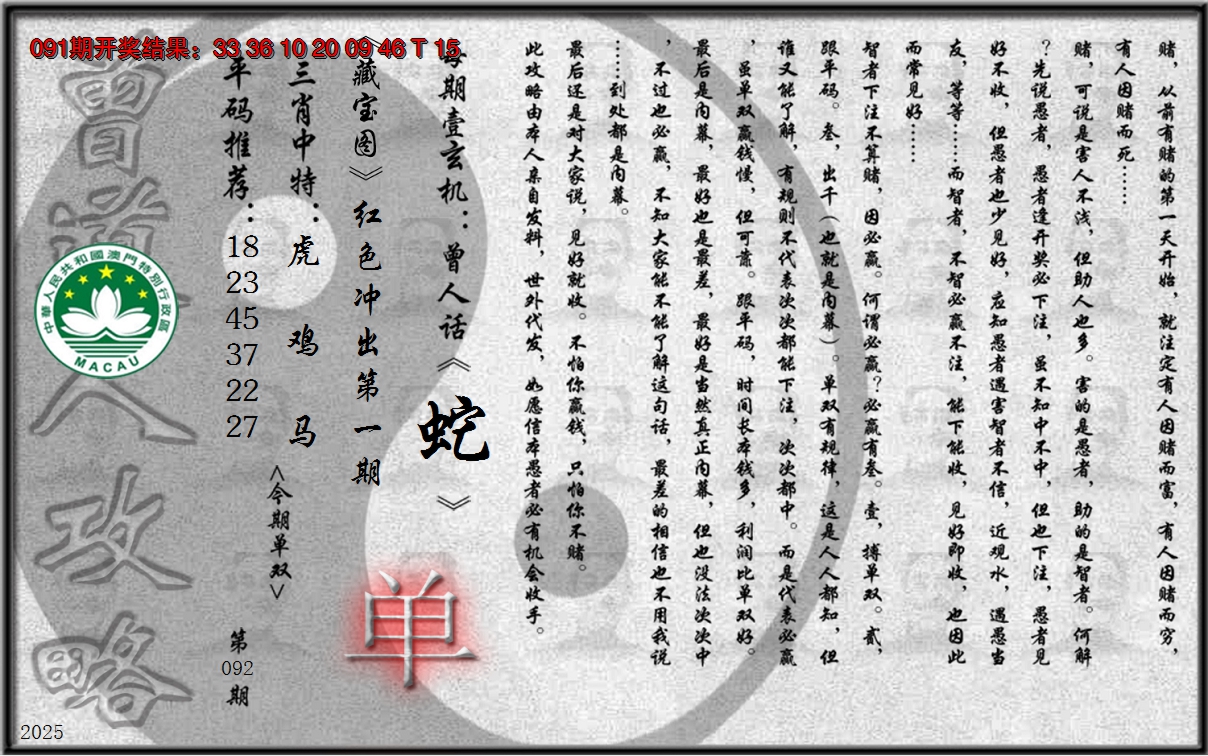 091期开奖结果：33 36 10 20 09 46 T 15
赌，从前有赌的第一天开始，就注定有人因赌而富，有人因赌而穷，
有人因赌而死……
赌，可说是害人不浅，但助人也多。害的是愚者，助的是智者。何解
？先说愚者，愚者逢开奖必下注，虽不知中不中，但也下注，愚者见
好不收，但愚者也少见好，应知愚者遇害智者不信，近观水，遇愚当
友，等等……而智者，不智必赢不注，能下能收，见好即收，也因此
而常见好……
智者下注不算赌，因必赢。何谓必赢？必赢有叁。壹，搏单双。贰，
跟平码。叁，出千（也就是内幕）。单双有规律，这是人人都知，但
谁又能了解，有规则不代表次次都能下注，次次都中。而是代表必赢
，虽单双赢钱慢，但可靠。跟平码，时间长本钱多，利润比单双好。
最后是内幕，最好也是最差，最好是当然真正内幕，但也没法次次中
，不过也必赢，不知大家能不能了解这句话，最差的相信也不用我说
……到处都是内幕。
最后还是对大家说，见好就收。不怕你赢钱，只怕你不赌。
此攻略由本人亲自发料，世外代发，如愿信本愚者必有机会收手。
每期壹玄机：曾人话《蛇》
《藏宝图》红色冲出第一期
单
三肖中特：虎 鸡 马
<今期单双>
平码推荐：18 23 45 37 22 27
第092期
曾道人攻略
中華人民共和國澳門特別行政區
MACAU
2025